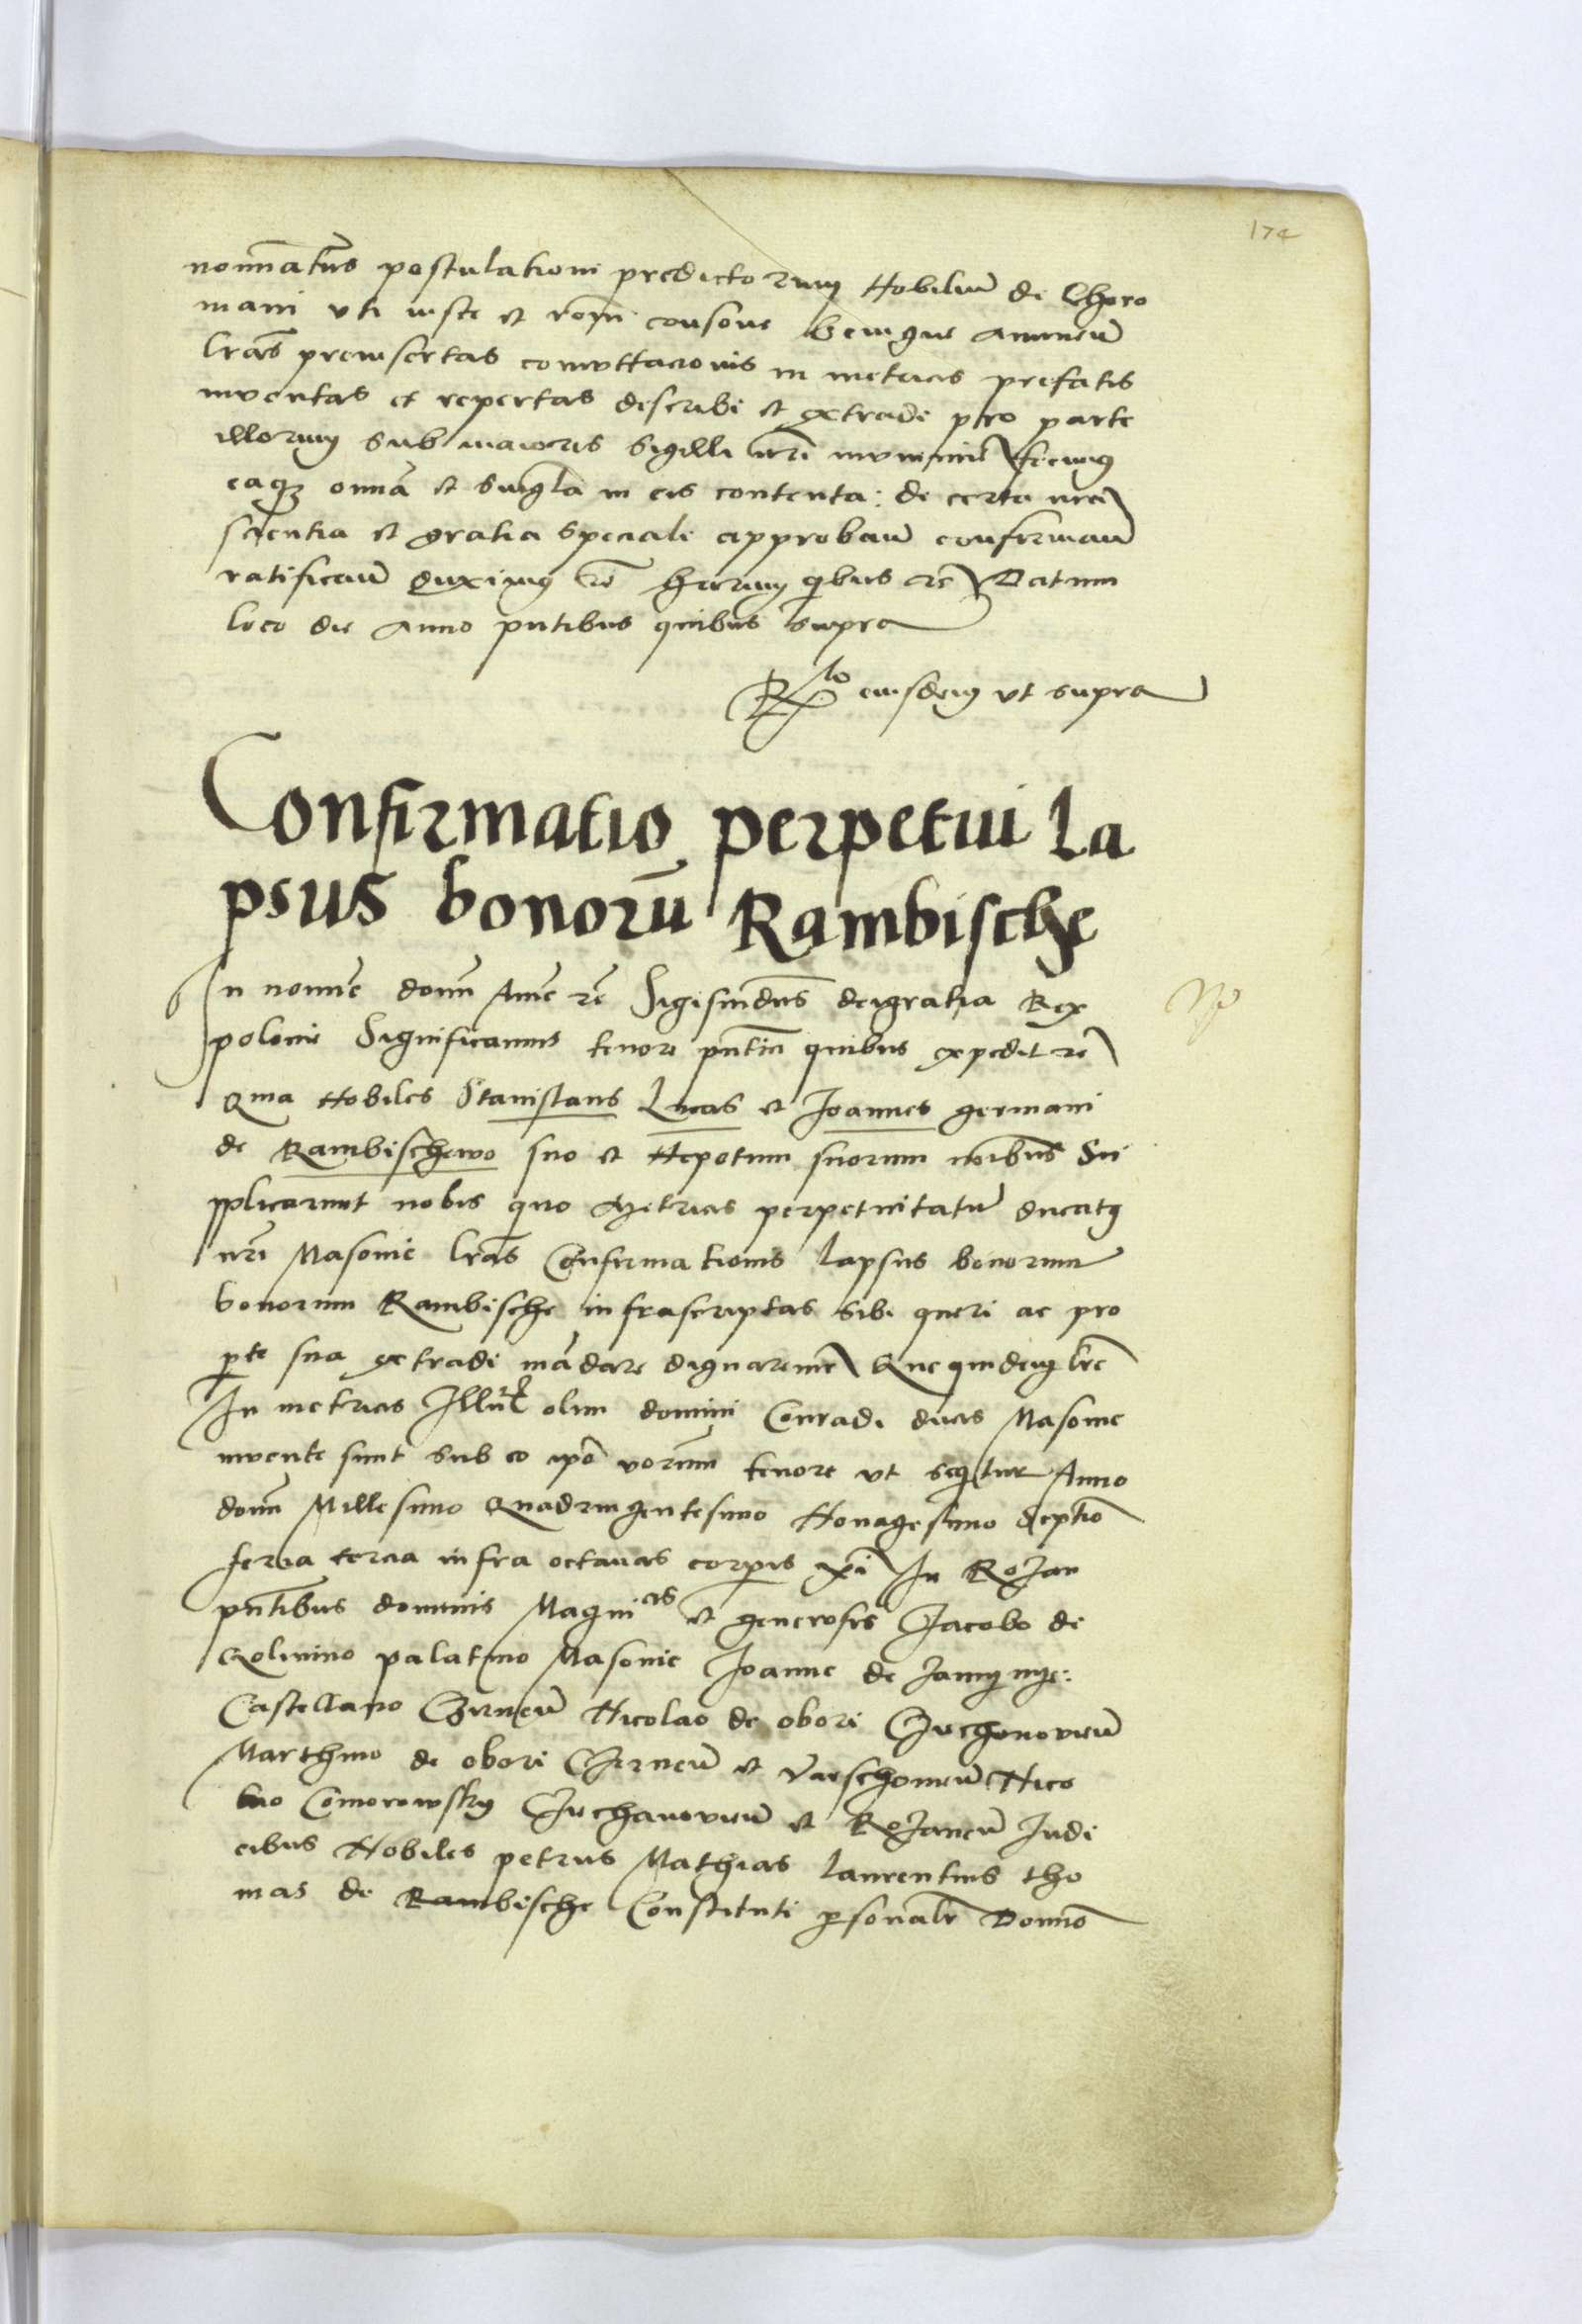 174
nominatus postulationi predictorum Nobilium de Choro
mani uti iuste et roni consone benigne annuen̄
l̄ras preinsertas comuttacionis in metricis prefatis
inventas et repertas describi et extradi pro parte
illorum sub maioris sigilli n̄ri
eaq3 om̄ia et sing̅la in eis contenta: de certa n̄ra
scientia et gratia speciali approbān̄ confirmān̄
ratificān̄ duximus harum quibus etc̄ Datum
loco die Anno pn̄tibus quibus supra
R̄lo eiusdem ut supra
Confirmatio perpetui La
psus bonorū Rambische
In nomīe domī Amē rē Sigismūdus deigratia Rex
polonie Significamus tenore pn̄tiū quibus expedit rē
Q̄uia Nobiles Stanislaus Lucas et Joannes germani
de Rambischewo suo et Nepotum suorum noībus Su
pplicarunt nobis quo Metricas perpetuitatū ducatus
n̄ri Masovie l̄ras Confirmationis lapsus bonorum
bonorum Rambische infrascriptas sibi queri ac pro
pte sua extradi mādare dignaremur Que quidem lrē
In metricis Ill̄ūs olim domini Conradi ducis Masovie
invente sunt sub eo ip̄o verborum tenore ut seq̄tur Anno
domī Millesimo Quadringentesimo Nonagesimo Septīo
feria tercia infra octavas corpis xpī In Rozan
pn̄tibus dominis Magnicis et generosis Jacobo de
Golimino palatino Masovie Joanne de
Castellano Czirneñ Nicolao de obori Czyechonovieñ
Marthino de obori Czirneñ et Varschovieñ Nico
lao Comorowsky Czyechanovieñ et Rozaneñ Judi
cibus Nobiles petrus Mathias laurentius tho
mas de Rambische Constituti psonalr̄ Domīo